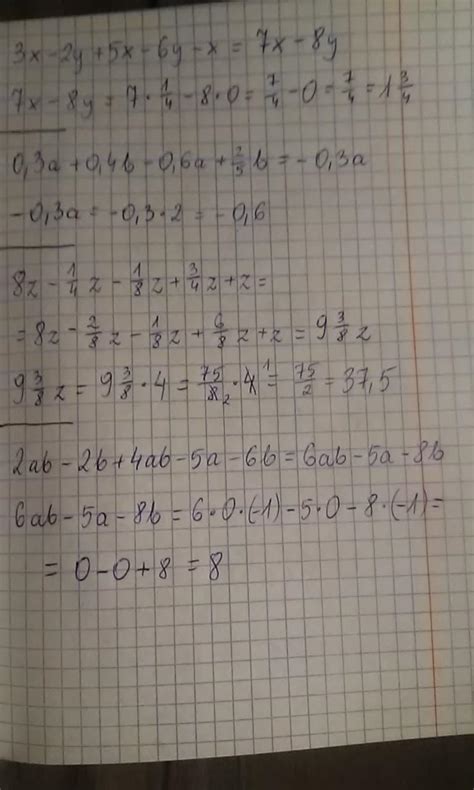 3x-2y+5x-6y-x = 7x-8y
7x-8y = 7·1/4-8·0 = 7/4-0 = 7/4 = 1 3/4
0,3a+0,4b-0,6a+2/5b = -0,3a
-0,3a = -0,3·2 = -0,6
8z-1/4z-1/8z+3/4z+z=
=8z-2/8z-1/8z+6/8z+z = 9 3/8z
9 3/8z = 9 3/8·4 = 75/8₂·4¹ = 75/2 = 37,5
2ab-2b+4ab-5a-6b = 6ab-5a-8b
6ab-5a-8b = 6·0·(-1)-5·0-8·(-1)=
= 0-0+8 = 8